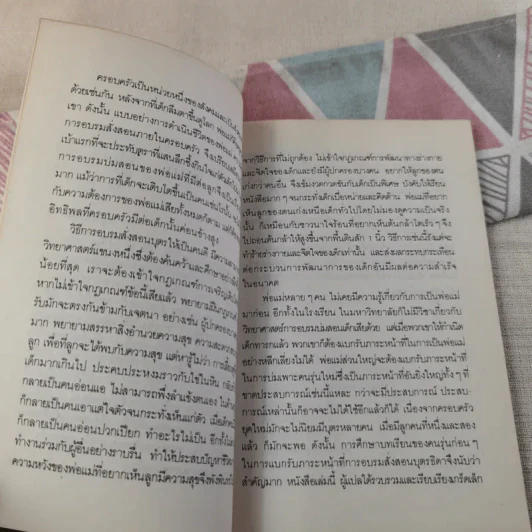 ครอบครัวเป็นหน่วยหนึ่งของสังคมและเป็น
ด้วยเช่นกัน หลังจากที่เด็กลืมตาขึ้นดูโลก พ่อแม่
เขา ดังนั้น แบบอย่างการดำเนินชีวิตของพ่อแม่
การอบรมสั่งสอนภายในครอบครัว จึงเปรียบ
เบ้าแรกที่จะประทับตราที่แสนลึกซึ้งกินใจแก่
การอบรมบ่มสอนของพ่อแม่ที่มีต่อลูกจึงเป็น
มาก แม้ว่าการที่เด็กจะเติบโตขึ้นเป็นคนเช่นไร
กับความต้องการของพ่อแม่เสียทั้งหมดก็ตาม แต่
อิทธิพลที่ครอบครัวมีต่อเด็กนั้นค่อนข้างสูง
วิธีการอบรมสั่งสอนบุตรให้เป็นคนดี มีความ
วิทยาศาสตร์แขนงหนึ่งซึ่งต้องค้นคว้าและศึกษาอย่าง
น้อยที่สุด เราจะต้องเข้าใจกฎเกณฑ์การเจริญเติบ
หากไม่เข้าใจกฎเกณฑ์ข้อนี้เสียแล้ว พยายามฝึก
รับมักจะตรงกันข้ามกับเจตนา อย่างเช่น ผู้ปกครอง
มาก พยายามสรรหาสิ่งอำนวยความสุข ความสะดวก
ลูก เพื่อที่ลูกจะได้พบกับความสุข แต่หารู้ไม่ว่า การ
เด็กมากเกินไป ประคบประหงมราวกับไข่ในหิน
กลายเป็นคนอ่อนแอ ไม่สามารถพึ่งลำแข้งตนเอง
ก็กลายเป็นคนเอาแต่ใจตัวจนกระทั่งเห็นแก่ตัว เมื่อ
ก็กลายเป็นคนอ่อนปวกเปียก ทำอะไรไม่เป็น อีกทั้ง
ทำงานร่วมกับผู้อื่นอย่างราบรื่น ทำให้ประสบปัญหา
ความหวังของพ่อแม่ที่อยากเห็นลูกมีความสุขจึงพังพินาศ
จากวิธีการที่ไม่ถูกต้อง ไม่เข้าใจกฎเกณฑ์การพัฒนาทางร่างกาย
และจิตใจของเด็กและยังมีผู้ปกครองบางคน อยากให้ลูกของตน
เก่งกว่าคนอื่น จึงเข้มงวดกวดขันกับเด็กเป็นพิเศษ บังคับให้เรียน
หนังสือมาก ๆ จนกระทั่งเด็กเบื่อหน่ายและคิดต้าน พ่อแม่ที่อยาก
เห็นลูกของตนเก่งเหนือเด็กทั่วไปโดยไม่มองดูความเป็นจริง
นั้น ก็เหมือนกับชาวนาใจร้อนที่อยากเห็นต้นกล้าโตเร็ว ๆ จึง
ไปถอนต้นกล้าให้สูงขึ้นจากพื้นดินสัก 1 นิ้ว วิธีการเช่นนี้รังแต่จะ
ทำร้ายร่างกายและจิตใจของเด็กเท่านั้น และส่งผลกระทบเทือน
ต่อกระบวนการพัฒนาการของเด็กอันมีผลต่อความสำเร็จ
ในอนาคต
พ่อแม่หลาย ๆ คน ไม่เคยมีความรู้เกี่ยวกับการเป็นพ่อแม่
มาก่อน อีกทั้งในโรงเรียน ในมหาวิทยาลัยก็ไม่มีวิชาเกี่ยวกับ
วิทยาศาสตร์การอบรมบ่มสอนเด็กเสียด้วย แต่เมื่อพวกเขาให้กำเนิด
เด็กทารกแล้ว พวกเขาก็ต้องแบกรับภาระหน้าที่ในการเป็นพ่อแม่
อย่างหลีกเลี่ยงไม่ได้ พ่อแม่ส่วนใหญ่จะต้องแบกรับภาระหน้าที่
ในการบ่มเพาะคนรุ่นใหม่ซึ่งเป็นภาระหน้าที่อันยิ่งใหญ่ทั้ง ๆ ที่
ขาดประสบการณ์เช่นนี้แหละ กว่าจะมีประสบการณ์ ประสบ-
การณ์เหล่านั้นก็อาจจะไม่ได้ใช้อีกแล้วก็ได้ เนื่องจากครอบครัว
ยุคใหม่มักจะไม่นิยมมีบุตรหลายคน เมื่อมีลูกคนที่หนึ่งและสอง
แล้ว ก็มักจะพอ ดังนั้น การศึกษาบทเรียนของคนรุ่นก่อน ๆ
ในการแบกรับภาระหน้าที่การอบรมสั่งสอนบุตรธิดาจึงนับว่า
สำคัญมาก หนังสือเล่มนี้ ผู้แปลได้รวบรวมและเรียบเรียงเกร็ดเล็ก